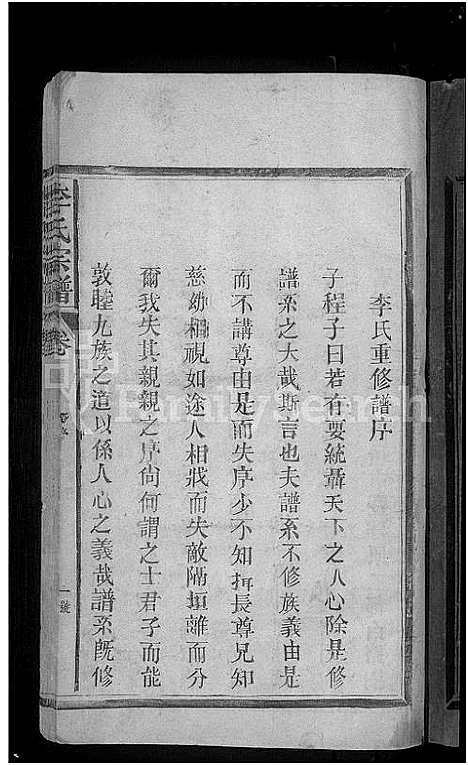 李氏重修譜序
子程子曰若有要統聶天下之人心除是修
譜系之大哉斯言也夫譜系不修族義由是
而不講尊由是而失序少不知拊長尊兄知
慈幼相視如途人相戕而失敵隔垣離而分
爾我失其親親之序尙何謂之士君子而能
敦睦九族之道以係人心之義哉譜系旣修
李氏宗譜 卷
一號
FamilySearch